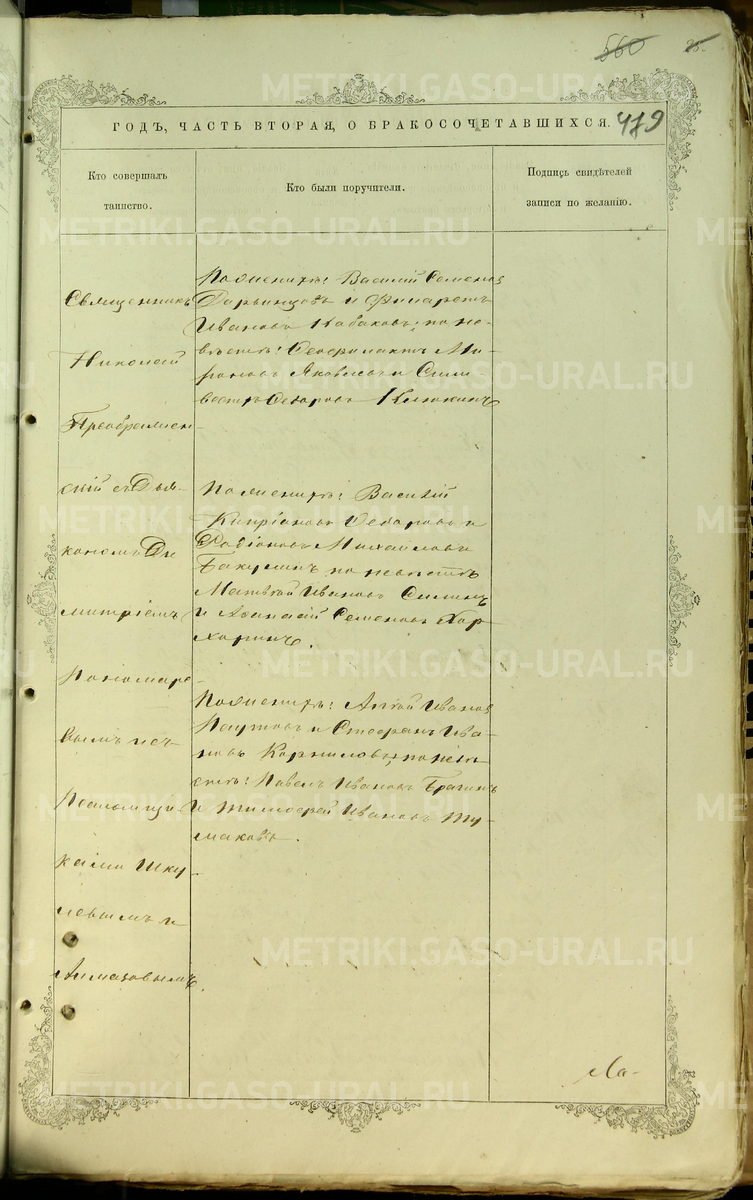 560 25.
METRIKI.GASO-URAL.RU
ГОДЪ, ЧАСТЬ ВТОРАЯ, О БРАКОСОЧЕТАВШИХСЯ. 479
Кто совершалъ
таинство.
Кто были поручители.
Подпись свидѣтелей
записи по желанію.
Священникъ
Николай
Преображен-
скій съ Дья-
кономъ Ди
митріемъ
Пономаре
вымъ и
Псаломщи
ками Шку-
левымъ и
Алмазовымъ.
По женихѣ: Василій Семеновъ
и Филаретъ
Ивановъ Кабаковъ; по не-
вѣстѣ: Феофилактъ Ми-
роновъ Яковлевъ и Сили
вестръ Федоровъ Клюкинъ
По женихѣ: Василій
Кипріановъ Федоровъ и
Родіоновъ Михайловъ
Бакулинъ по невѣстѣ
Матвѣй Ивановъ Силинъ
и Афанасій Семеновъ Хор
хоринъ.
По женихѣ: Ивановъ
и Стефанъ Ива-
новъ Корниловы; по невѣ
стѣ: Павелъ Ивановъ Брагинъ
и Тимофей Ивановъ Ту-
маковъ.